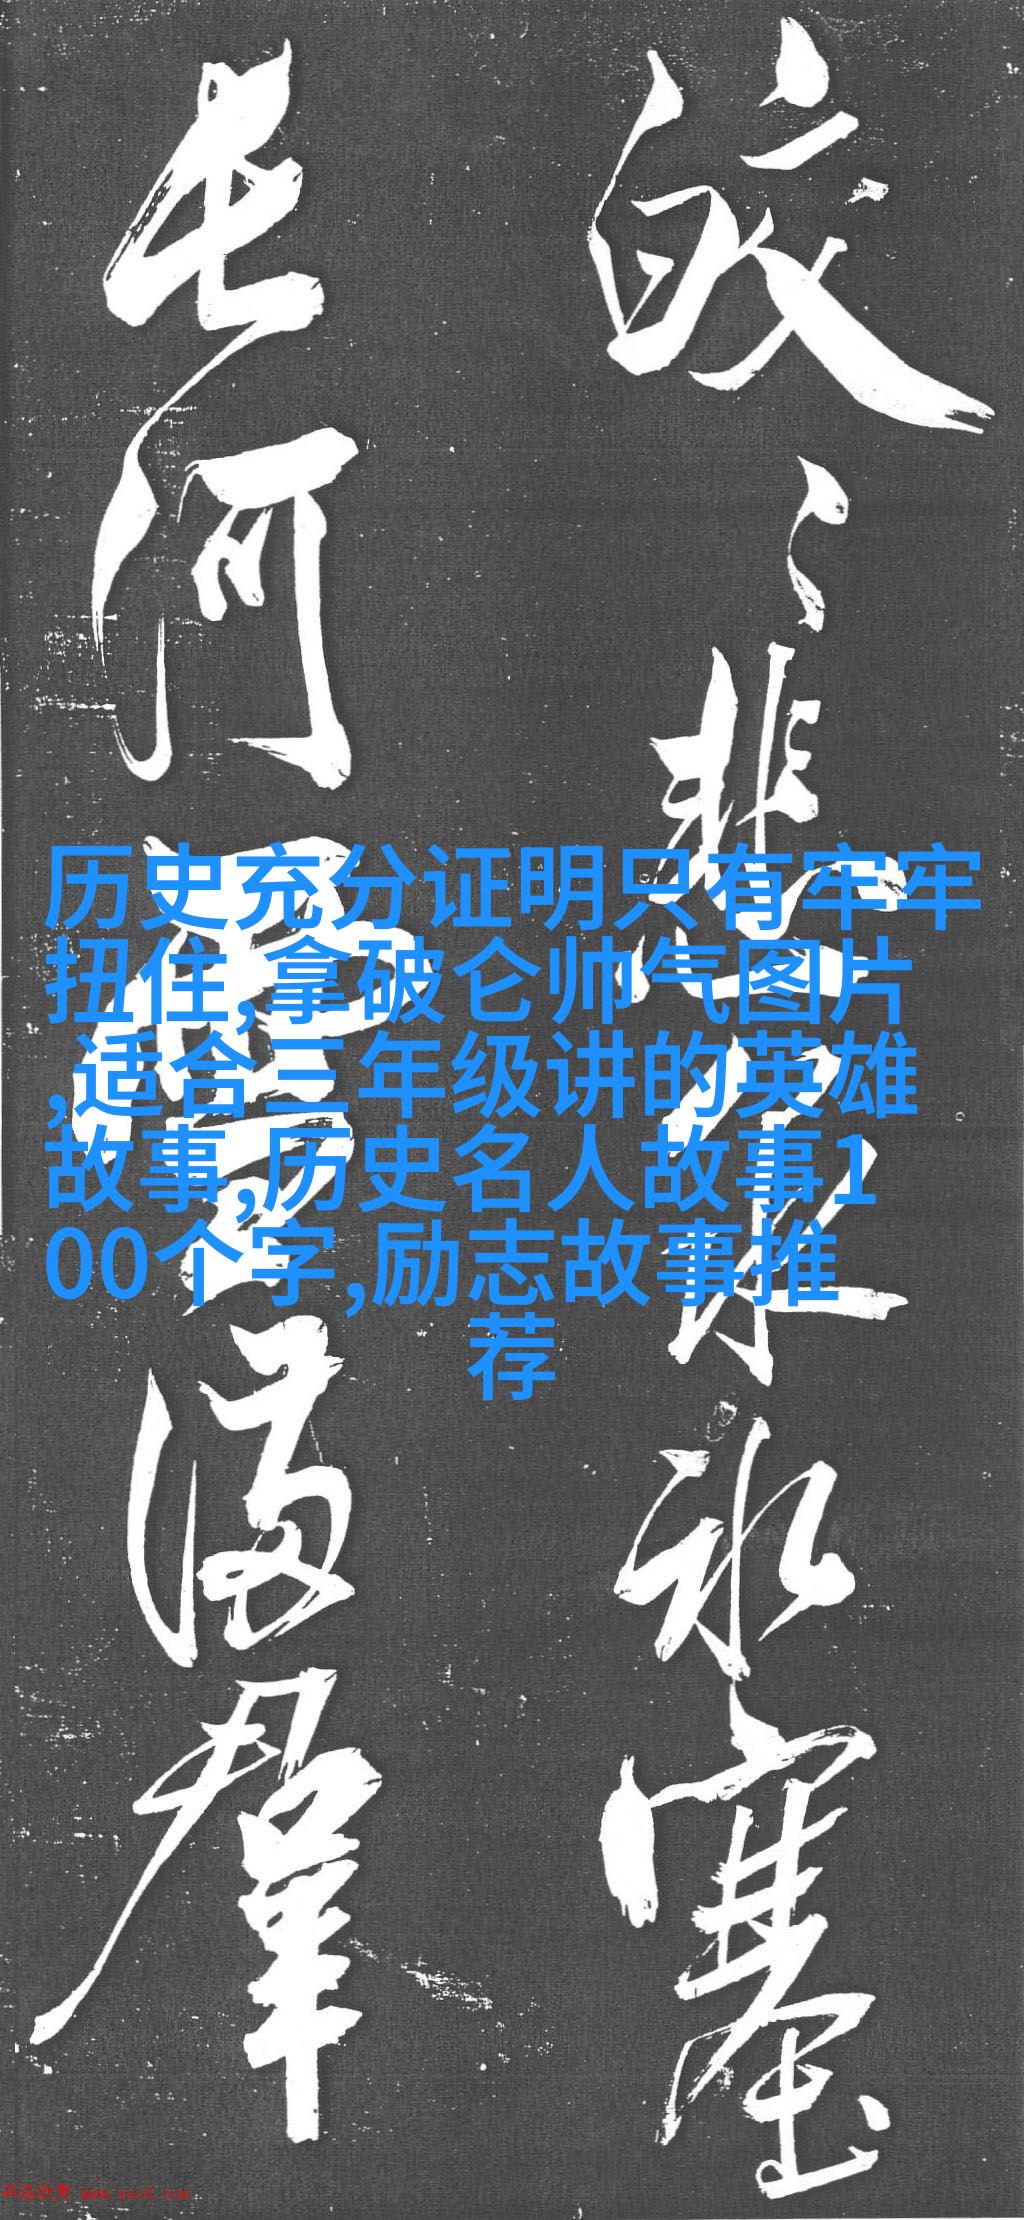 皎〻悲泉水塞
长河
满群
历史充分证明只有牢牢
扭住,拿破仑帅气图片
,适合三年级讲的英雄
故事,历史名人故事1
00个字,励志故事推
荐
书法欣赏 www.yac8.com